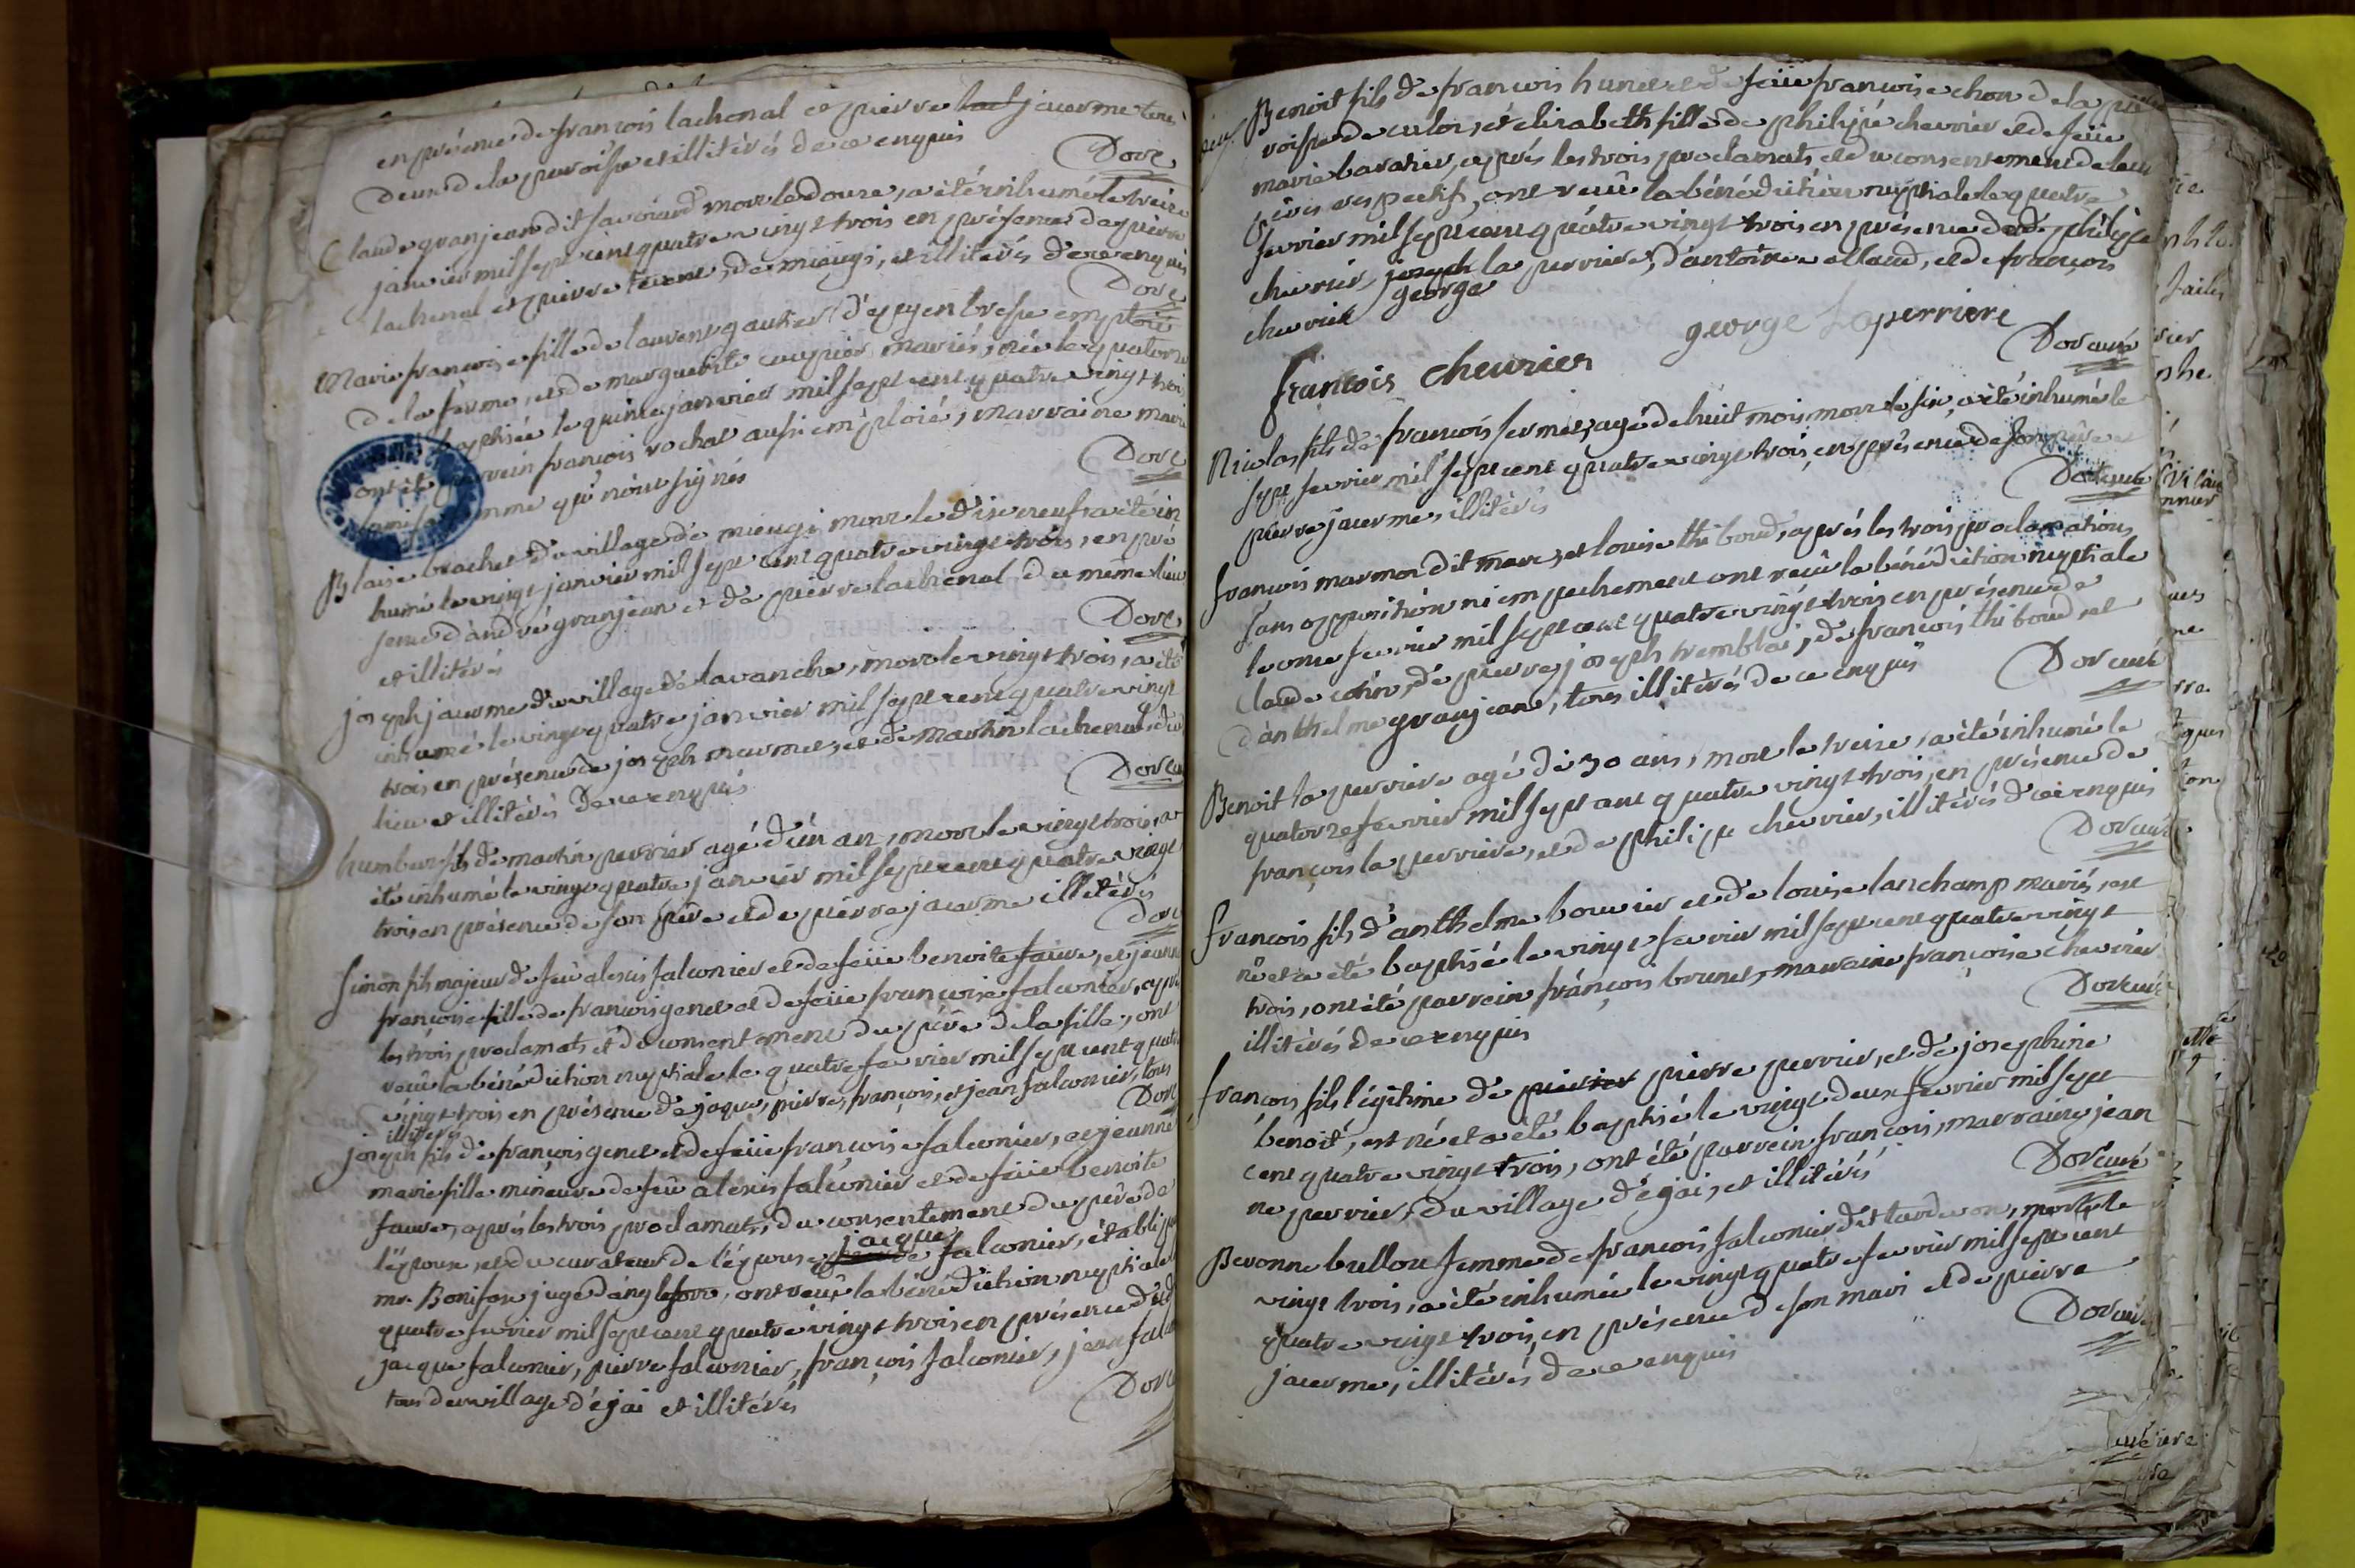 en présence de françois lachenal et pierre jacerme tous
deux de la paroisse et illitérés de ce enquis
Dorc
Claude granjean dit savoiard mort le douze, a été inhumé le treize
janvier mil sept cent quatre vingt trois en présence de pierre
lachenal et pierre de mieugi, et illitérés de ce enquis
Dorc
Marie françoise fille de laurent gautier d'epey en bresse emploié
de la ferme, et de marguerite mariés, née le quatorze
baptisée le quinze janvier mil sept cent quatre vingt trois
ont été parrein françois rochat aussi emploié, marraine marie
femme qui n'ont signés
Dorc
Blaise brachet du village de mieugi mort le dixneuf a été in
humé le vingt janvier mil sept cent quatre vingt trois, en pré
sence d'andré granjean et de pierre lachenal du même lieu
et illitérés
Dorc
joseph jacerme du village de lavanche, mort le vingt trois, a été
inhumé le vingt quatre janvier mil sept cent quatre vingt
trois en présence de joseph marmet, et de martin lachenal du
lieu et illitérés de ce enquis
Dorcu
humbert fils de martin perrier agé d'un an, mort le vingt trois, a
été inhumé le vingt quatre janvier mil sept cent quatre vingt
trois en présence de son père et de pierre jacerme illitérés
Dorc
Simon fils majeur de feu alexis falconier et de feüe benoite faure, et jeanne
françoise fille de françois genet et de feüe françoise falconier, après
les trois proclamats et du consentement du père de la fille, ont
reçû la bénédiction nuptiale le quatre fevrier mil sept cent quatre
vingt trois en présence de jaque, pierre, françois, et jean falconier, tous
illitérés
Dorc
joseph fils de françois genet et de feüe françoise falconier, et jeanne
marie fille mineure de feu alexis falconier et de feüe benoite
faure, après les trois proclamats, du consentement du père de
l'époux, et du curateur de l'épouse jacque falconier, établi par
mr. Boniface juge d'anglefort, ont reçû la bénédiction nuptiale
quatre fevrier mil sept cent quatre vingt trois en présence dud
jacque falconier, pierre falconier, françois falconier, jean falco
tous du village d'éjai et illitérés
Dorc
Benoit fils de françois hunet et de feüe françoise chon de la pa
roisse de culoz, et elisabeth fille de philipe chevrier et de feüe
marie baratier, après les trois proclamats et du consentement de leurs
pères respectifs, ont reçû la bénédiction nuptiale le quatre
fevrier mil sept cent quatre vingt trois en présence dud philipe
chevrier, joseph la perriere, d'antoine allaud, et de françois
george
chevrier
george Laperriere
françois chevrier
Dorcuré
Nicolas fils de françois fermet, agé de huit mois, mort le six, a été inhumé le
sept fevrier mil sept cent quatre vingt trois, en présence de son père et
pierre jacerme, illitérés
Dorcuré
françois marmon dit marc, et louise thiboud, après les trois proclamations
sans opposition ni empechement ont reçû la bénédiction nuptiale
le onze fevrier mil sept cent quatre vingt trois en présence de
claude de pierre joseph tremblai, de françois thiboud et
d'anthelme granjean, tous illitérés de ce enquis
Dorcuré
Benoit la perriere agé de 30 ans, mort le treize, a été inhumé le
quatorze fevrier mil sept cent quatre vingt trois, en présence de
françois la perriere, et de philipe chevrier, illitérés de ce enquis
Dorcuré
françois fils d'anthelme bouvier et de louise lanchamp mariés, est
né et a été baptisé le vingt fevrier mil sept cent quatre vingt
trois, ont été parrein françois brunet, marraine françoise chevrier
illitérés de ce enquis
Dorcuré
françois fils légitime de pierre perrier, et de josephine
benoit, est né et a été baptisé le vingt deux fevrier mil sept
cent quatre vingt trois, ont été parrein françois, marraine jean
ne perrier, du village d'éjai, et illitérés
Dorcuré
Pevonne bullou femme de françois falconier dit morte le
vingt trois, a été inhumée le vingt quatre fevrier mil sept cent
quatre vingt trois, en présence de son mari et de pierre
jacerme, illitérés de ce enquis
Dorcuré